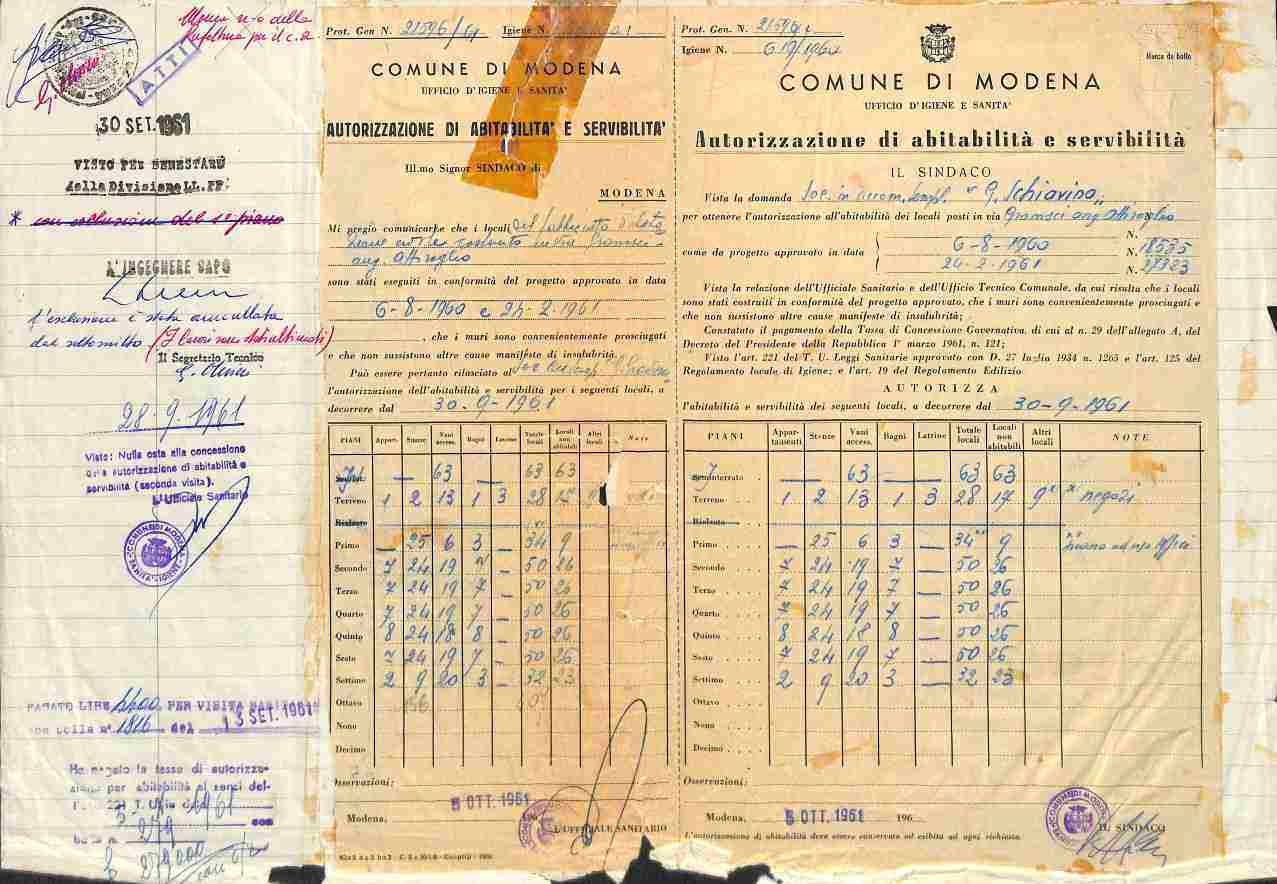 ATTI
30 SET. 1961
VISTO PER BENESTARE
della Divisione LL.PP.
* con esclusione del 1° piano
L'INGEGNERE CAPO
l'esclusione è stata annullata
dal sottoscritto (I lavori sono stati ultimati)
Il Segretario Tecnico
28.9.1961
Visto: Nulla osta alla concessione
della autorizzazione di abitabilità e
servibilità (seconda visita).
L'Ufficiale Sanitario
COMUNE DI MODENA
SANITÀ - IGIENE
PAGATO LIRE PER VISITA
con bolla n° 1816 del 13 SET. 1961
Ha pagato la tassa di autorizza-
zione per abitabilità ai sensi del-
l'art. 221 T. U. 1961
con
279
£ 279000
Prot. Gen N. 21596/61 Igiene N.
COMUNE DI MODENA
UFFICIO D'IGIENE E SANITA'
AUTORIZZAZIONE DI ABITABILITA' E SERVIBILITA'
Ill.mo Signor SINDACO di
MODENA
Mi pregio comunicarhe che i locali del fabbricato
costruito in via Gramsci
ang. Attiraglio
sono stati eseguiti in conformità del progetto approvato in data
6-8-1960 e 24-2-1961
, che i muri sono convenientemente prosciugati
e che non sussistono altre cause manifeste di insalubrità.
Può essere pertanto rilasciato al
l'autorizzazione dell'abitabilità e servibilità per i seguenti locali, a
decorrere dal 30-9-1961
PIANI Appart. Stanze Vani access. Bagni Latrine Totale locali Locali non abitabili Altri locali Note
— 63 63 63
Terreno 1 2 13 1 3 28
Rialzato
Primo — 25 6 3 — 34 9
Secondo 7 24 19 7 — 50 26
Terzo 7 24 19 7 — 50 26
Quarto 7 24 19 7 — 50 26
Quinto 8 24 18 8 — 50 26
Sesto 7 24 19 7 — 50 26
Settimo 2 9 20 3 — 32 23
Ottavo 156
Nono
Decimo
Osservazioni:
Modena, 5 OTT. 1961
L'UFFICIALE SANITARIO
Prot. Gen. N. 21596/
Igiene N. 619/1961
Marca da bollo
COMUNE DI MODENA
UFFICIO D'IGIENE E SANITA'
Autorizzazione di abitabilità e servibilità
IL SINDACO
Vista la domanda Soc. in accom. sempl. "G. Schiavina"
per ottenere l'autorizzazione all'abitabilità dei locali posti in via Gramsci ang. Attiraglio
N.
come da progetto approvato in data 6-8-1960 N. 18535
24-2-1961 N. 27323
Vista la relazione dell'Ufficiale Sanitario e dell'Ufficio Tecnico Comunale, da cui risulta che i locali
sono stati costruiti in conformità del progetto approvato, che i muri sono convenientemente prosciugati e
che non sussistono altre cause manifeste di insalubrità;
Constatato il pagamento della Tassa di Concessione Governativa, di cui al n. 29 dell'allegato A, del
Decreto del Presidente della Repubblica 1° marzo 1961, n. 121;
Visto l'art. 221 del T. U. Leggi Sanitarie approvato con D. 27 luglio 1934 n. 1265 e l'art. 125 del
Regolamento locale di Igiene; e l'art. 19 del Regolamento Edilizio
AUTORIZZA
l'abitabilità e servibilità dei seguenti locali, a decorrere dal 30-9-1961
PIANI Appartamenti Stanze Vani access. Bagni Latrine Totale locali Locali non abitabili Altri locali NOTE
Seminterrato — 63 63 63
Terreno 1 2 13 1 3 28 17 9x x negozi
Rialzato
Primo — 25 6 3 — 34 9
Secondo 7 24 19 7 — 50 26
Terzo 7 24 19 7 — 50 26
Quarto 7 24 19 7 — 50 26
Quinto 8 24 18 8 — 50 26
Sesto 7 24 19 7 — 50 26
Settimo 2 9 20 3 — 32 23
Ottavo
Nono
Decimo
Osservazioni:
Modena, 5 OTT. 1961 196
IL SINDACO
COMUNE DI MODENA
L'autorizzazione di abitabilità deve essere conservata ed esibita ad ogni richiesta.